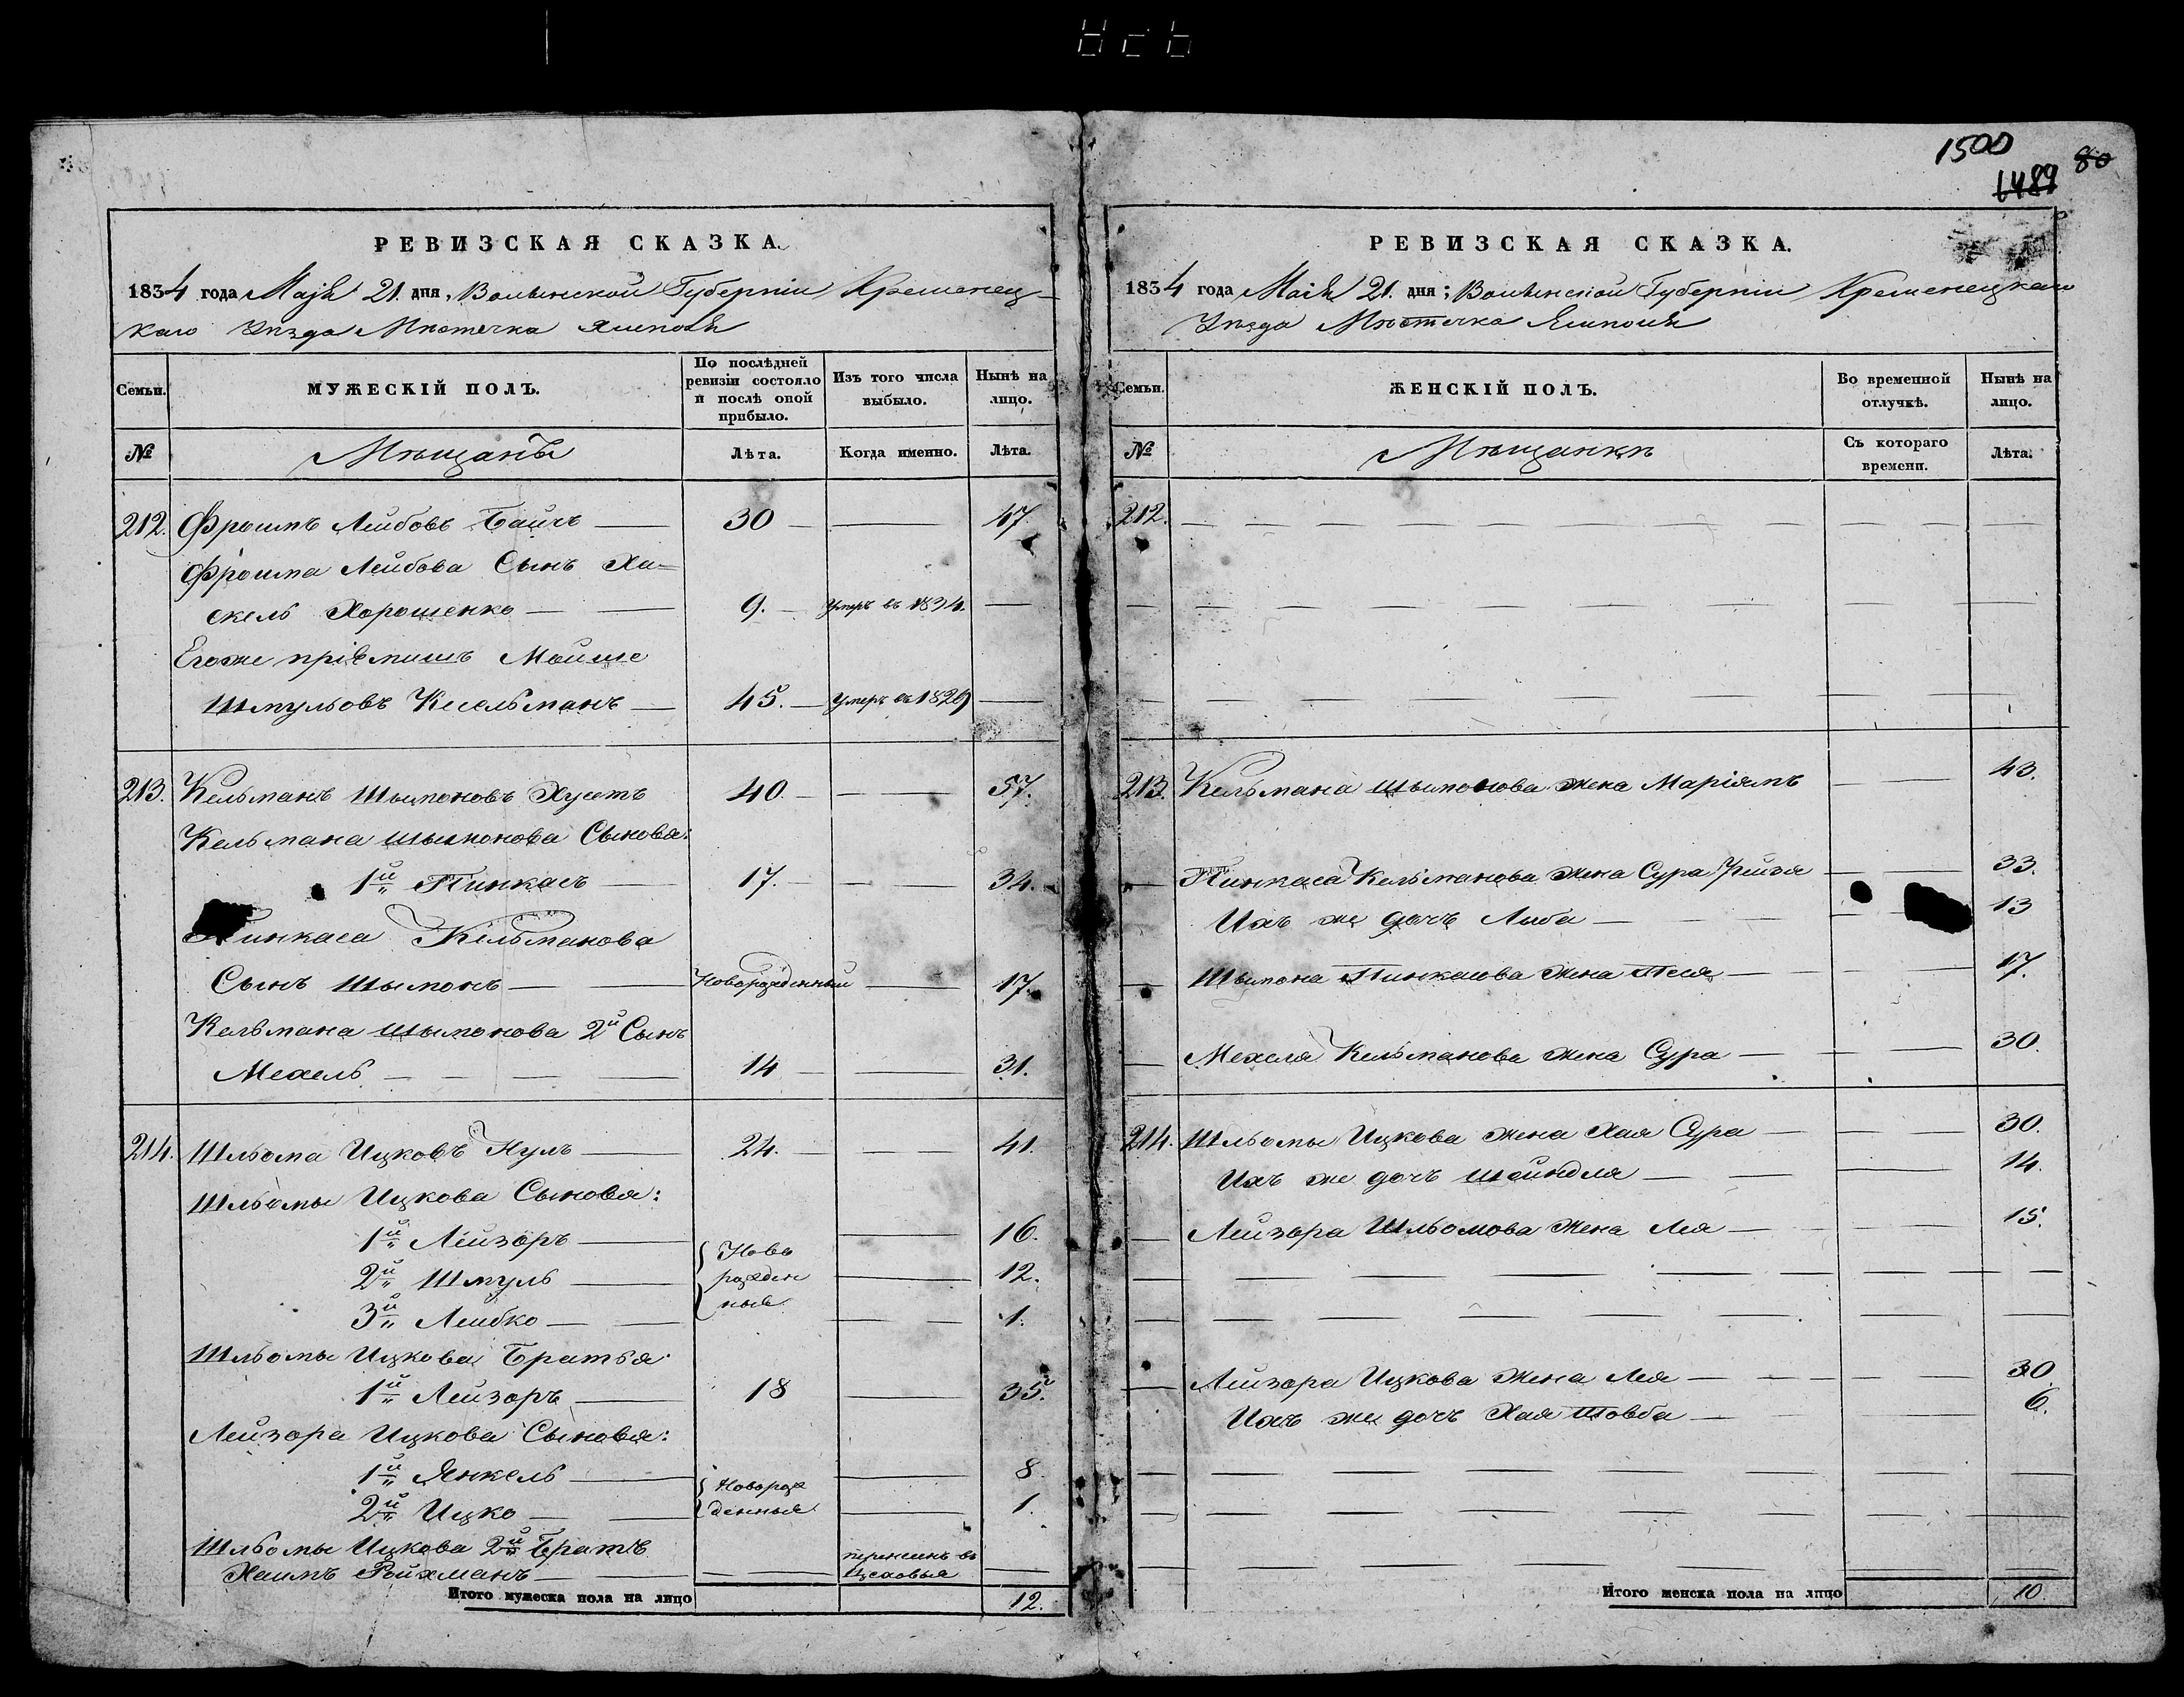 1500
1489 80
РЕВИЗСКАЯ СКАЗКА.
1834 года Маія 21. дня, Волынской Губерніи Кременец-
каго Уѣзда Мѣстечка Ямполя
Семьи. МУЖЕСКІЙ ПОЛЪ. По послѣдней ревизіи состояло и послѣ оной прибыло. Изъ того числа выбыло. Нынѣ на лицо.
№ Мѣщанъ Лѣта. Когда именно. Лѣта.
212. Фроимъ Лейбовъ 30 47.
Фроима Лейбова Сынъ Ха-
скель Хорошенко 9. Умеръ въ 1834.
Егоже пріемишъ Мойше
Шмульовъ Кесельманъ 45. Умеръ въ 1829
213. Кельманъ Шымоновъ 40. 57.
Кельмана Шымонова Сыновя:
1й Пинкасъ 17. 34.
Пинкаса Кельманова
Сынъ Шымонъ Новорожденный 17.
Кельмана Шымонова 2й Сынъ
Мехель 14 31.
214. Шльома Ицковъ 24. 41.
Шльомы Ицкова Сыновя:
1й Лейзоръ Ново 16.
2й Шмуль рожден 12.
3й Лейбко ныя 1.
Шльомы Ицкова Братья
1й Лейзоръ 18 35.
Лейзора Ицкова Сыновя:
1й Янкель Новорож 8.
2й Ицко денныя 1.
Шльомы Ицкова 2й Братъ
Хаимъ Ройхманъ перенсенъ въ Цеховыя
Итого мужеска пола на лицо 12.
РЕВИЗСКАЯ СКАЗКА.
1834 года Маія 21. дня; Волынской Губерніи Кременецкаго
Уѣзда Мѣстечка Ямполя
Семьи. ЖЕНСКІЙ ПОЛЪ. Во временной отлучкѣ. Нынѣ на лицо.
№ Мѣщанки Съ котораго времени. Лѣта.
212.
213. Кельмана Шымонова жена Маріямъ 43.
Пинкаса Кельманова жена Сура 33.
Ихъ же дочъ 13
Шымона Пинкасова жена 17.
Мехеля Кельманова жена Сура 30.
214. Шльомы Ицкова жена Хая Сура 30.
Ихъ же дочъ Шейндля 14.
Лейзора Шльомова жена Лея 15.
Лейзора Ицкова жена Лея 30
Ихъ же дочъ Хая 6.
Итого женска пола на лицо 10.